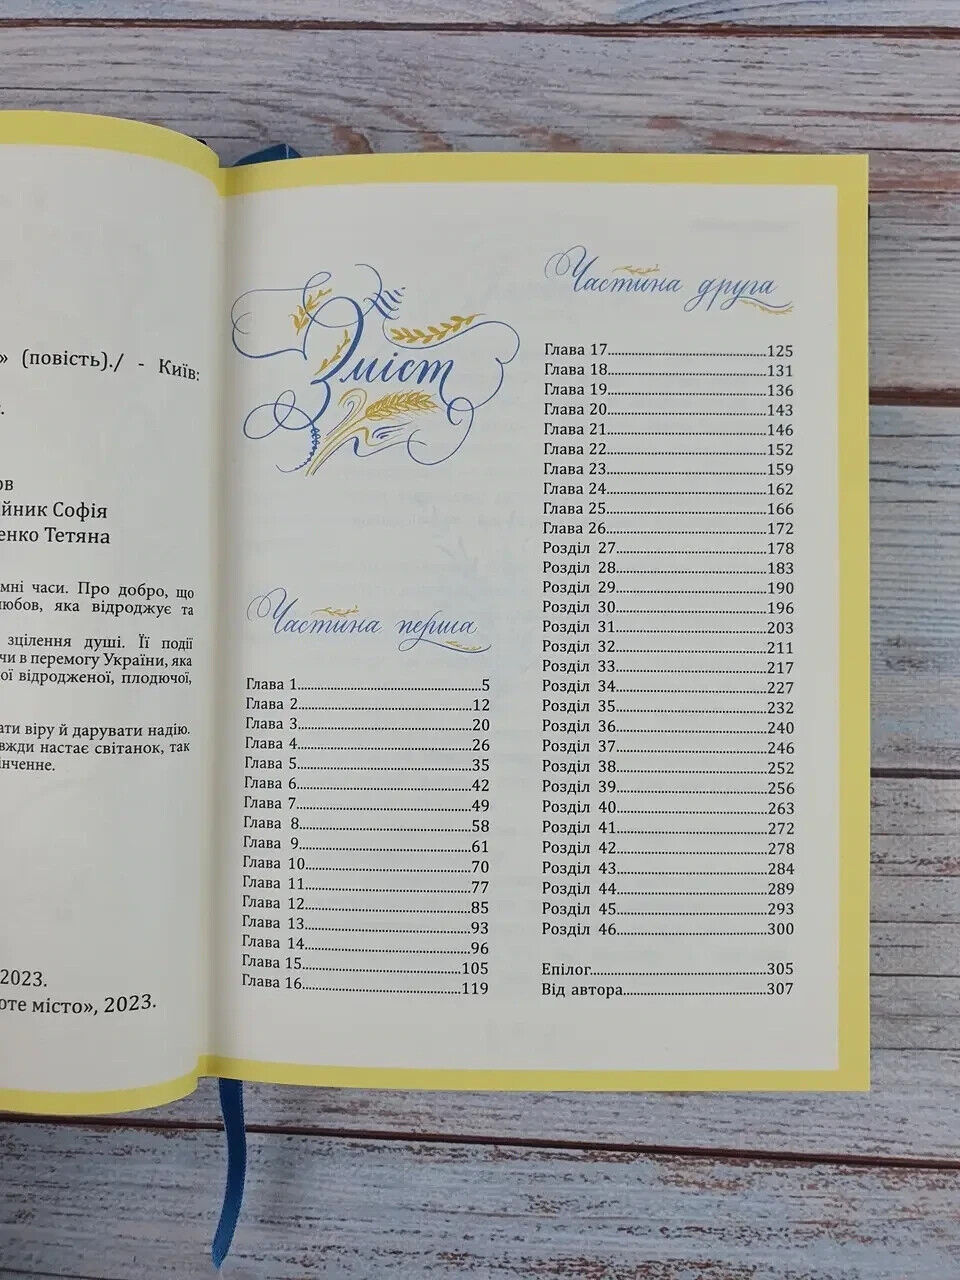 » (повість)./ - Київ:
ов
йник Софія
енко Тетяна
мні часи. Про добро, що
юбов, яка відроджує та
зцілення душі. Її події
чи в перемогу України, яка
ої відродженої, плодючої,
ати віру й дарувати надію.
вжди настає світанок, так
інченне.
2023.
оте місто», 2023.
Зміст
Частина перша
Глава 1.....5
Глава 2.....12
Глава 3.....20
Глава 4.....26
Глава 5.....35
Глава 6.....42
Глава 7.....49
Глава 8.....58
Глава 9.....61
Глава 10.....70
Глава 11.....77
Глава 12.....85
Глава 13.....93
Глава 14.....96
Глава 15.....105
Глава 16.....119
Частина друга
Глава 17.....125
Глава 18.....131
Глава 19.....136
Глава 20.....143
Глава 21.....146
Глава 22.....152
Глава 23.....159
Глава 24.....162
Глава 25.....166
Глава 26.....172
Розділ 27.....178
Розділ 28.....183
Розділ 29.....190
Розділ 30.....196
Розділ 31.....203
Розділ 32.....211
Розділ 33.....217
Розділ 34.....227
Розділ 35.....232
Розділ 36.....240
Розділ 37.....246
Розділ 38.....252
Розділ 39.....256
Розділ 40.....263
Розділ 41.....272
Розділ 42.....278
Розділ 43.....284
Розділ 44.....289
Розділ 45.....293
Розділ 46.....300
Епілог.....305
Від автора.....307